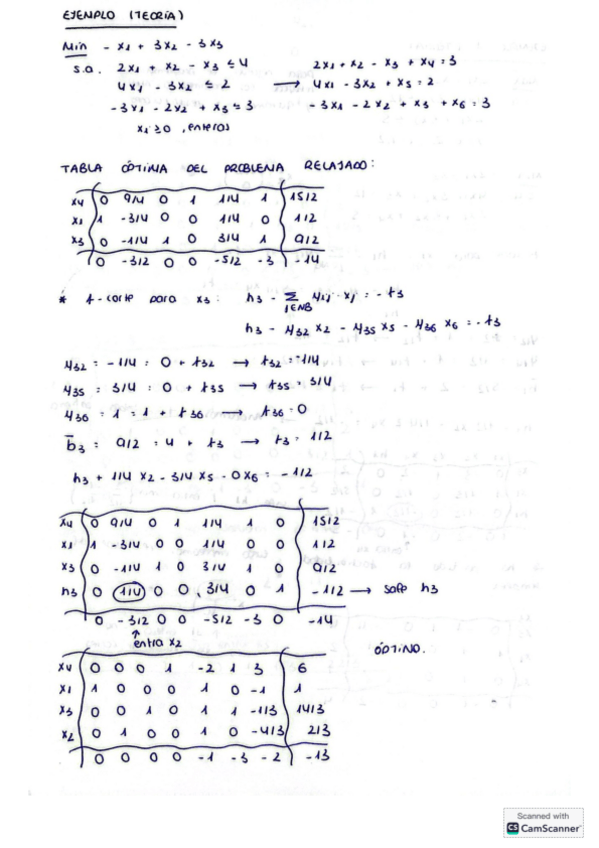 EJEMPLO (TEORÍA)
Min - x1 + 3x2 - 3x3
s.a. 2x1 + x2 - x3 ≤ 4 2x1 + x2 - x3 + x4 = 3
4x1 - 3x2 ≤ 2 → 4x1 - 3x2 + x5 = 2
-3x1 - 2x2 + x3 ≤ 3 -3x1 - 2x2 + x3 + x6 = 3
xi ≥ 0, enteros
TABLA ÓPTIMA DEL PROBLEMA RELAJADO:
x4 0 9/4 0 1 1/4 1 15/2
x1 1 -3/4 0 0 1/4 0 1/2
x3 0 -1/4 1 0 3/4 1 9/2
0 -3/2 0 0 -5/2 -3 -14
* f-corte para x3: h3 - Σ i∈NB · xj = - f3
h3 - y32 x2 - y35 x5 - y36 x6 = - f3
y32 = -1/4 = 0 + f32 → f32 = -1/4
y35 = 3/4 = 0 + f35 → f35 = 3/4
y36 = 1 = 1 + f36 → f36 = 0
b̄3 = 9/2 = 4 + f3 → f3 = 1/2
h3 + 1/4 x2 - 3/4 x5 - 0x6 = - 1/2
x4 0 9/4 0 1 1/4 1 0 15/2
x1 1 -3/4 0 0 1/4 0 0 1/2
x3 0 -1/4 1 0 3/4 1 0 9/2
h3 0 1/4 0 0 3/4 0 1 -1/2 → sale h3
0 -3/2 0 0 -5/2 -3 0 -14
↑
entra x2 ÓPTIMO.
x4 0 0 0 1 -2 1 3 6
x1 1 0 0 0 1 0 -1 1
x3 0 0 1 0 1 1 -1/3 14/3
x2 0 1 0 0 1 0 -4/3 2/3
0 0 0 0 -1 -3 -2 -13
Scanned with
CS CamScanner